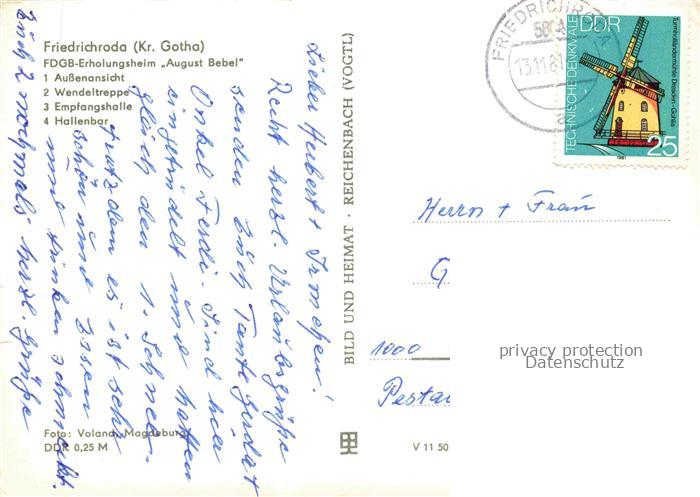 Friedrichroda (Kr. Gotha)
FDGB-Erholungsheim „August Bebel“
1 Außenansicht
2 Wendeltreppe
3 Empfangshalle
4 Hallenbar
Lieber Herbert + Irmchen!
Recht herzl. Urlaubsgrüße
senden Euch Tante Gerda +
Onkel Ferdi. Sind hier
eingetrudelt und hatten
gleich den 1. Schnee.
Trotzdem es ist sehr
schön und Essen
und trinken schmeckt.
Euch 2 nochmals herzl. Grüße
Foto: Voland, Magdeburg
DDR 0,25 M
BILD UND HEIMAT · REICHENBACH (VOGTL)
V 11 50
FRIEDRICHRO
580
13.11.81
DDR
TECHNISCHE DENKMALE
Turmholländermühle Dresden-Gohlis
25
1981
Herrn + Frau
G
1000
Pesta
privacy protection
Datenschutz